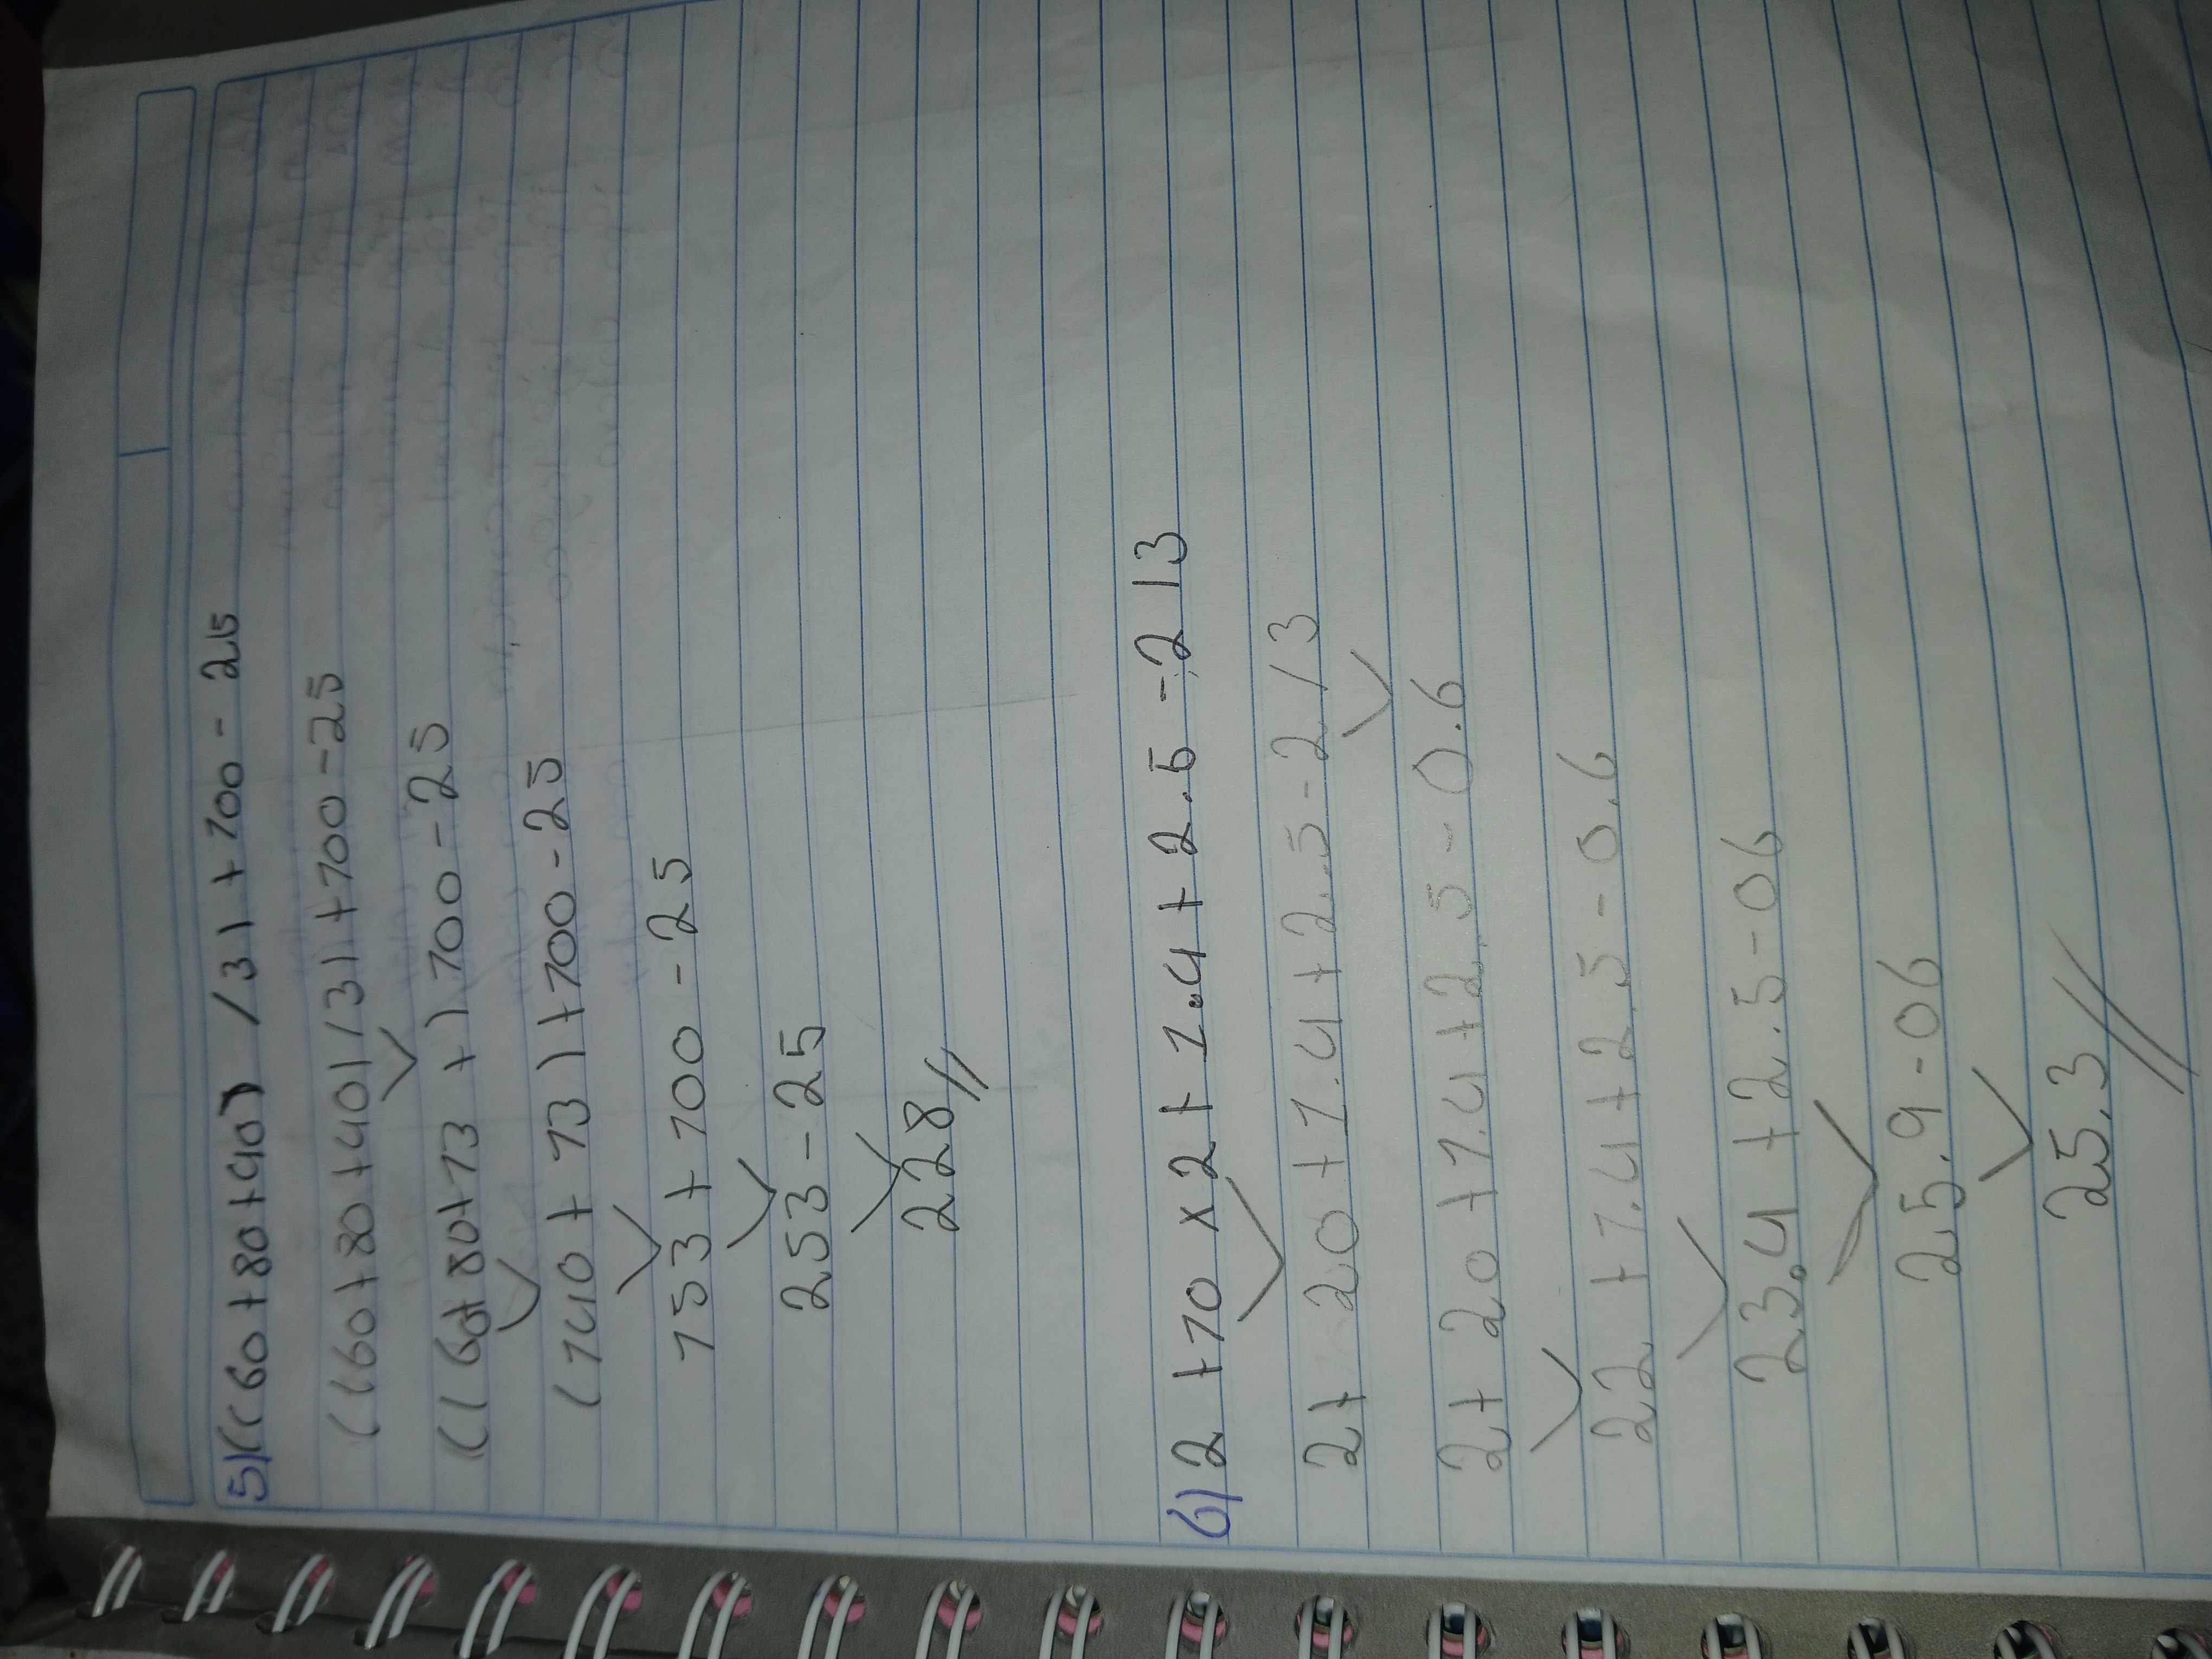 5)((60+80+40) /3)+100-25
((60+80+40)/3)+100-25
((60+80+13+)100-25
(140+13)+100-25
153+100-25
253-25
228//
6)2+10x2+1.4+2.5-2/3
2+20+1.4+2.5-2/3
2+20+1.4+2.5-0.6
22+1.4+2.5-0.6
23.4+2.5-06
25.9-06
25.3//